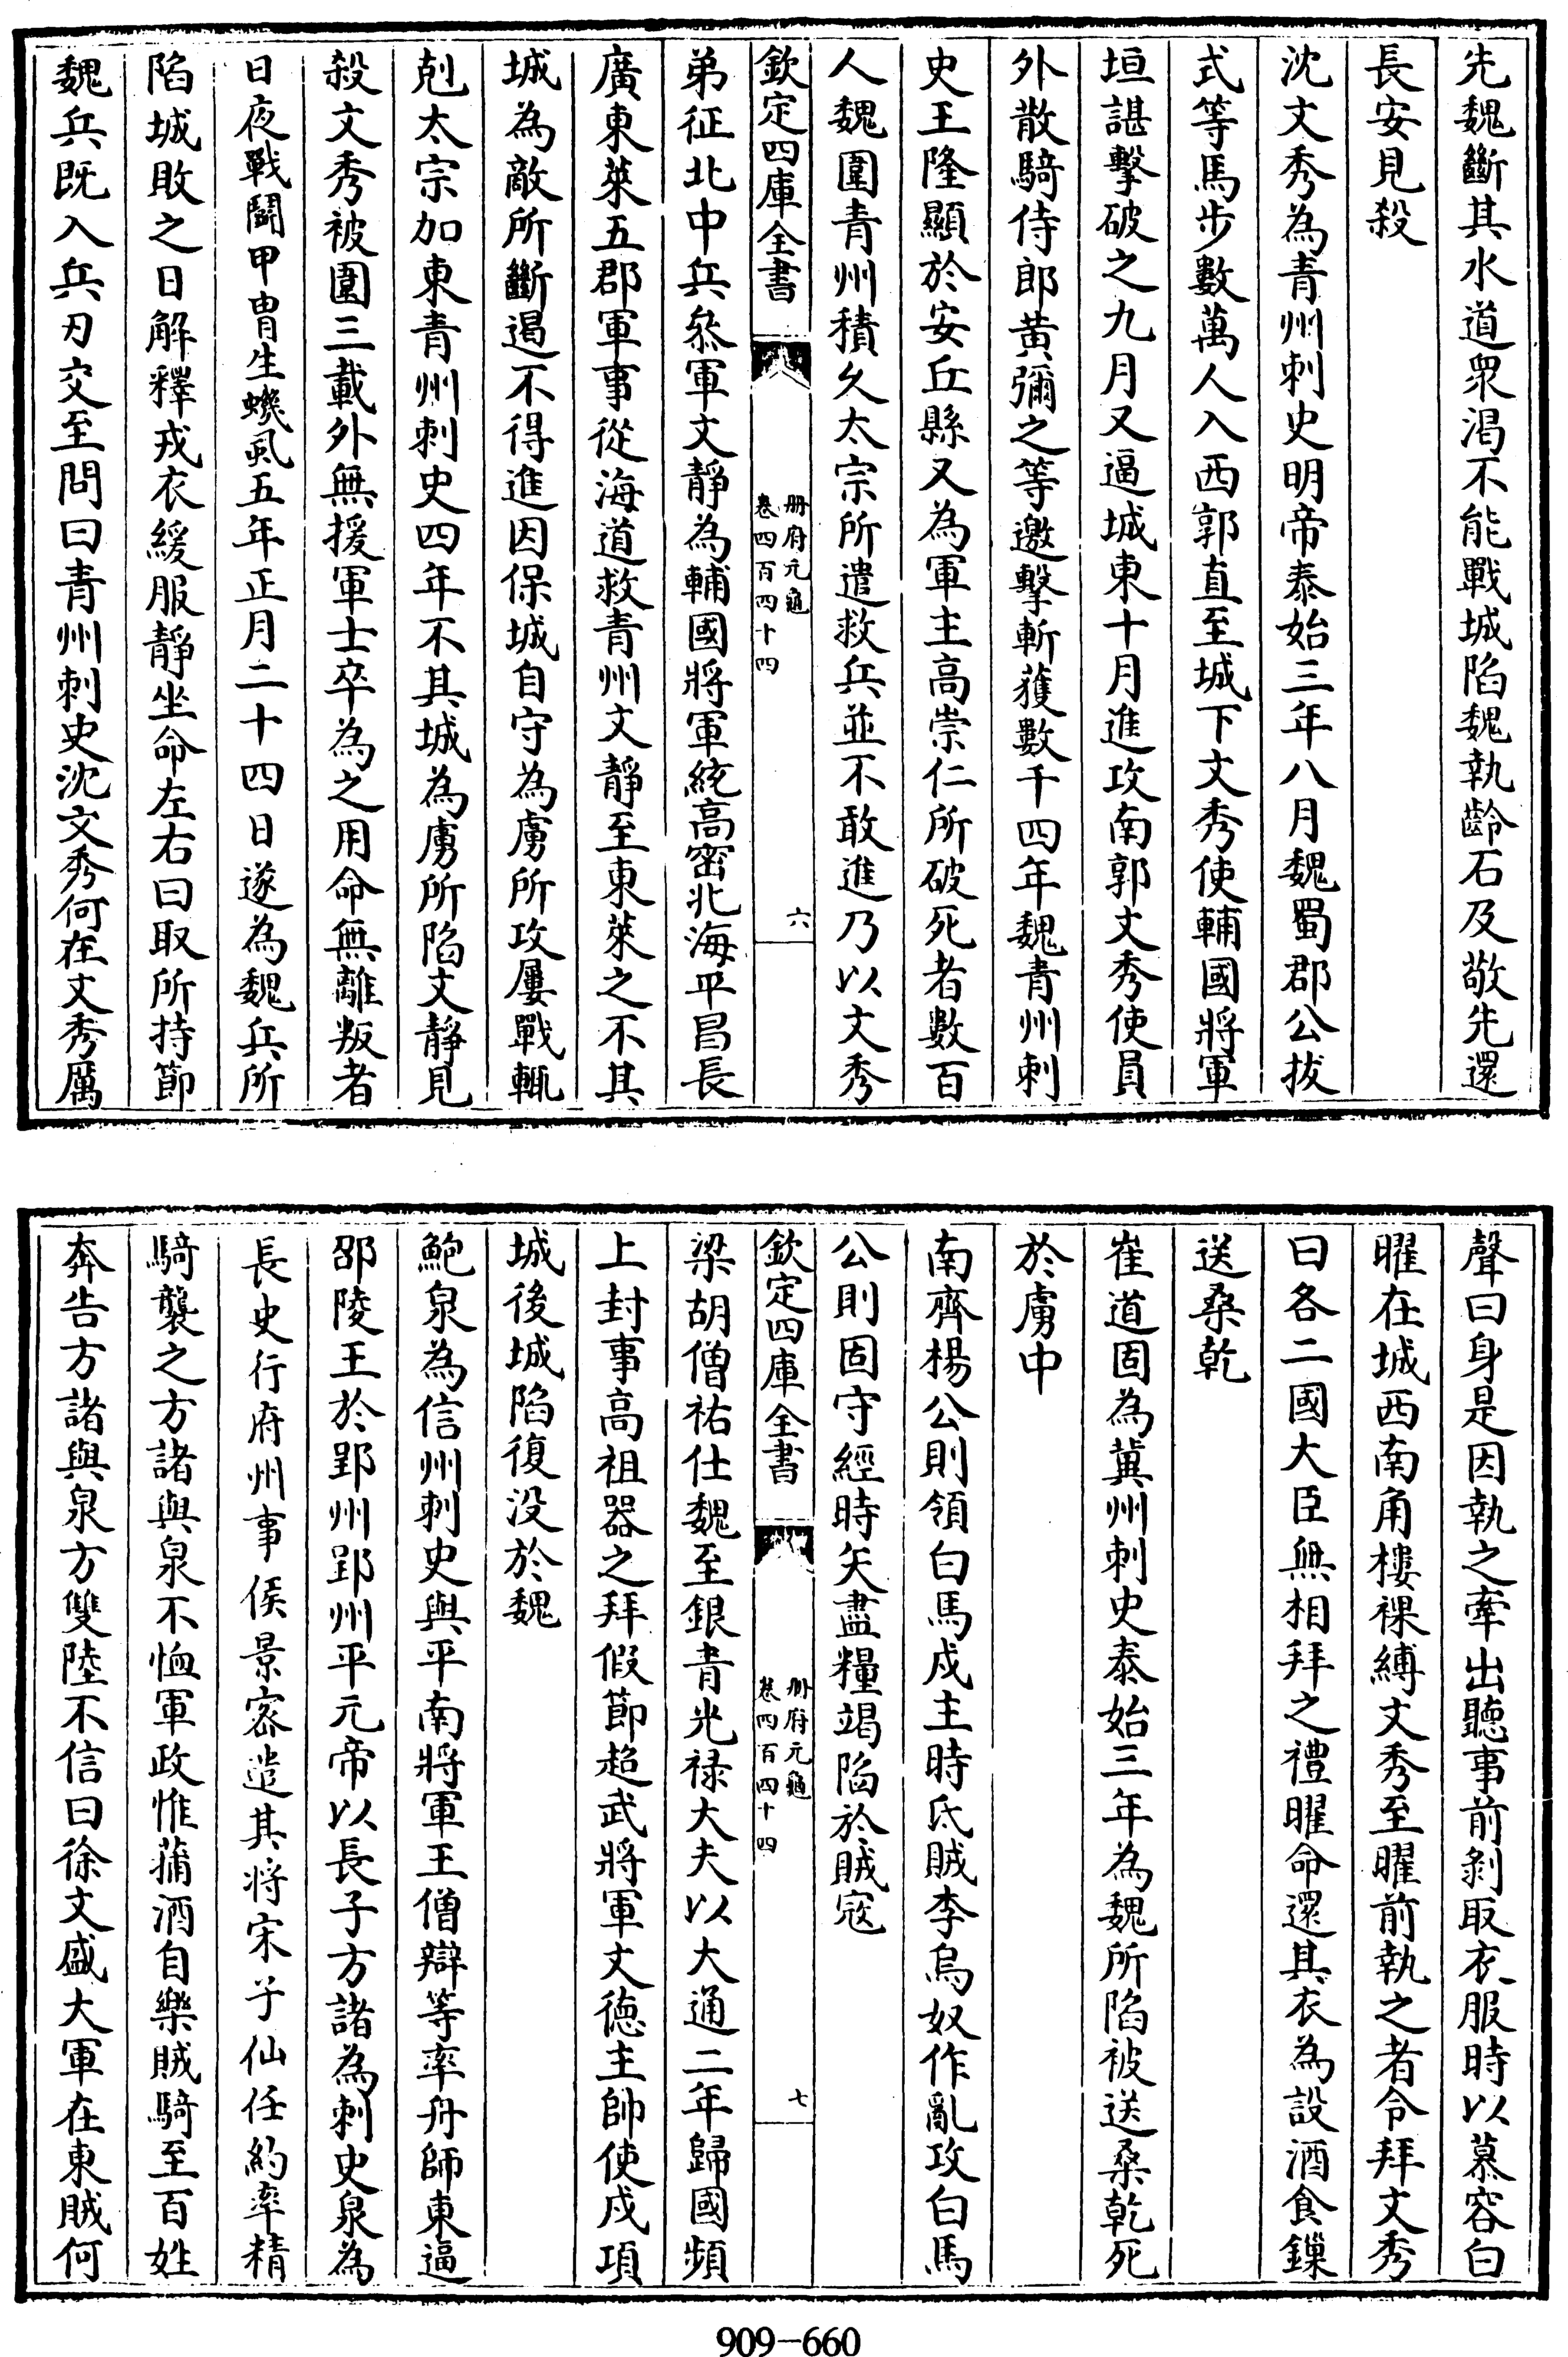 先魏斷其水道衆渴不能戰城陷魏執齡石及敬先還
長安見殺
沈文秀為青州刺史明帝泰始三年八月魏蜀郡公拔
式等馬步數萬人入西郭直至城下文秀使輔國將軍
垣諶擊破之九月又逼城東十月進攻南郭文秀使員
外散騎侍郎黄彌之等邀擊斬獲數千四年魏青州刺
史王隆顯於安丘縣又為軍主高崇仁所破死者數百
人魏圍青州積久太宗所遣救兵並不敢進乃以文秀
欽定四庫全書
册府元龜
卷四百四十四
六
弟征北中兵叅軍文靜為輔國將軍統高密北海平昌長
廣東萊五郡軍事從海道救青州文靜至東萊之不其
城為敵所斷遏不得進因保城自守為虜所攻屢戰輒
剋太宗加東青州刺史四年不其城為虜所陷文靜見
殺文秀被圍三載外無援軍士卒為之用命無離叛者
日夜戰鬬甲胄生蟣虱五年正月二十四日遂為魏兵所
陷城敗之日解釋戎衣緩服靜坐命左右曰取所持節
魏兵既入兵刃交至問曰青州刺史沈文秀何在文秀厲
聲曰身是因執之牽出聽事前剝取衣服時以慕容白
曜在城西南角樓裸縛文秀至曜前執之者令拜文秀
曰各二國大臣無相拜之禮曜命還其衣為設酒食鏁
送桑乾
崔道固為冀州刺史泰始三年為魏所陷被送桑乾死
於虜中
南齊楊公則領白馬戍主時氐賊李烏奴作亂攻白馬
公則固守經時矢盡糧竭陷於賊寇
欽定四庫全書
册府元龜
卷四百四十四
七
梁胡僧祐仕魏至銀青光禄大夫以大通二年歸國頻
上封事高祖器之拜假節超武將軍文德主帥使戍項
城後城陷復没於魏
鮑泉為信州刺史與平南將軍王僧辯等率舟師東逼
邵陵王於郢州郢州平元帝以長子方諸為刺史泉為
長史行府州事侯景密遣其将宋子仙任約率精
騎襲之方諸與泉不恤軍政惟蒲酒自樂賊騎至百姓
奔告方諸與泉方雙陸不信曰徐文盛大軍在東賊何
909-660